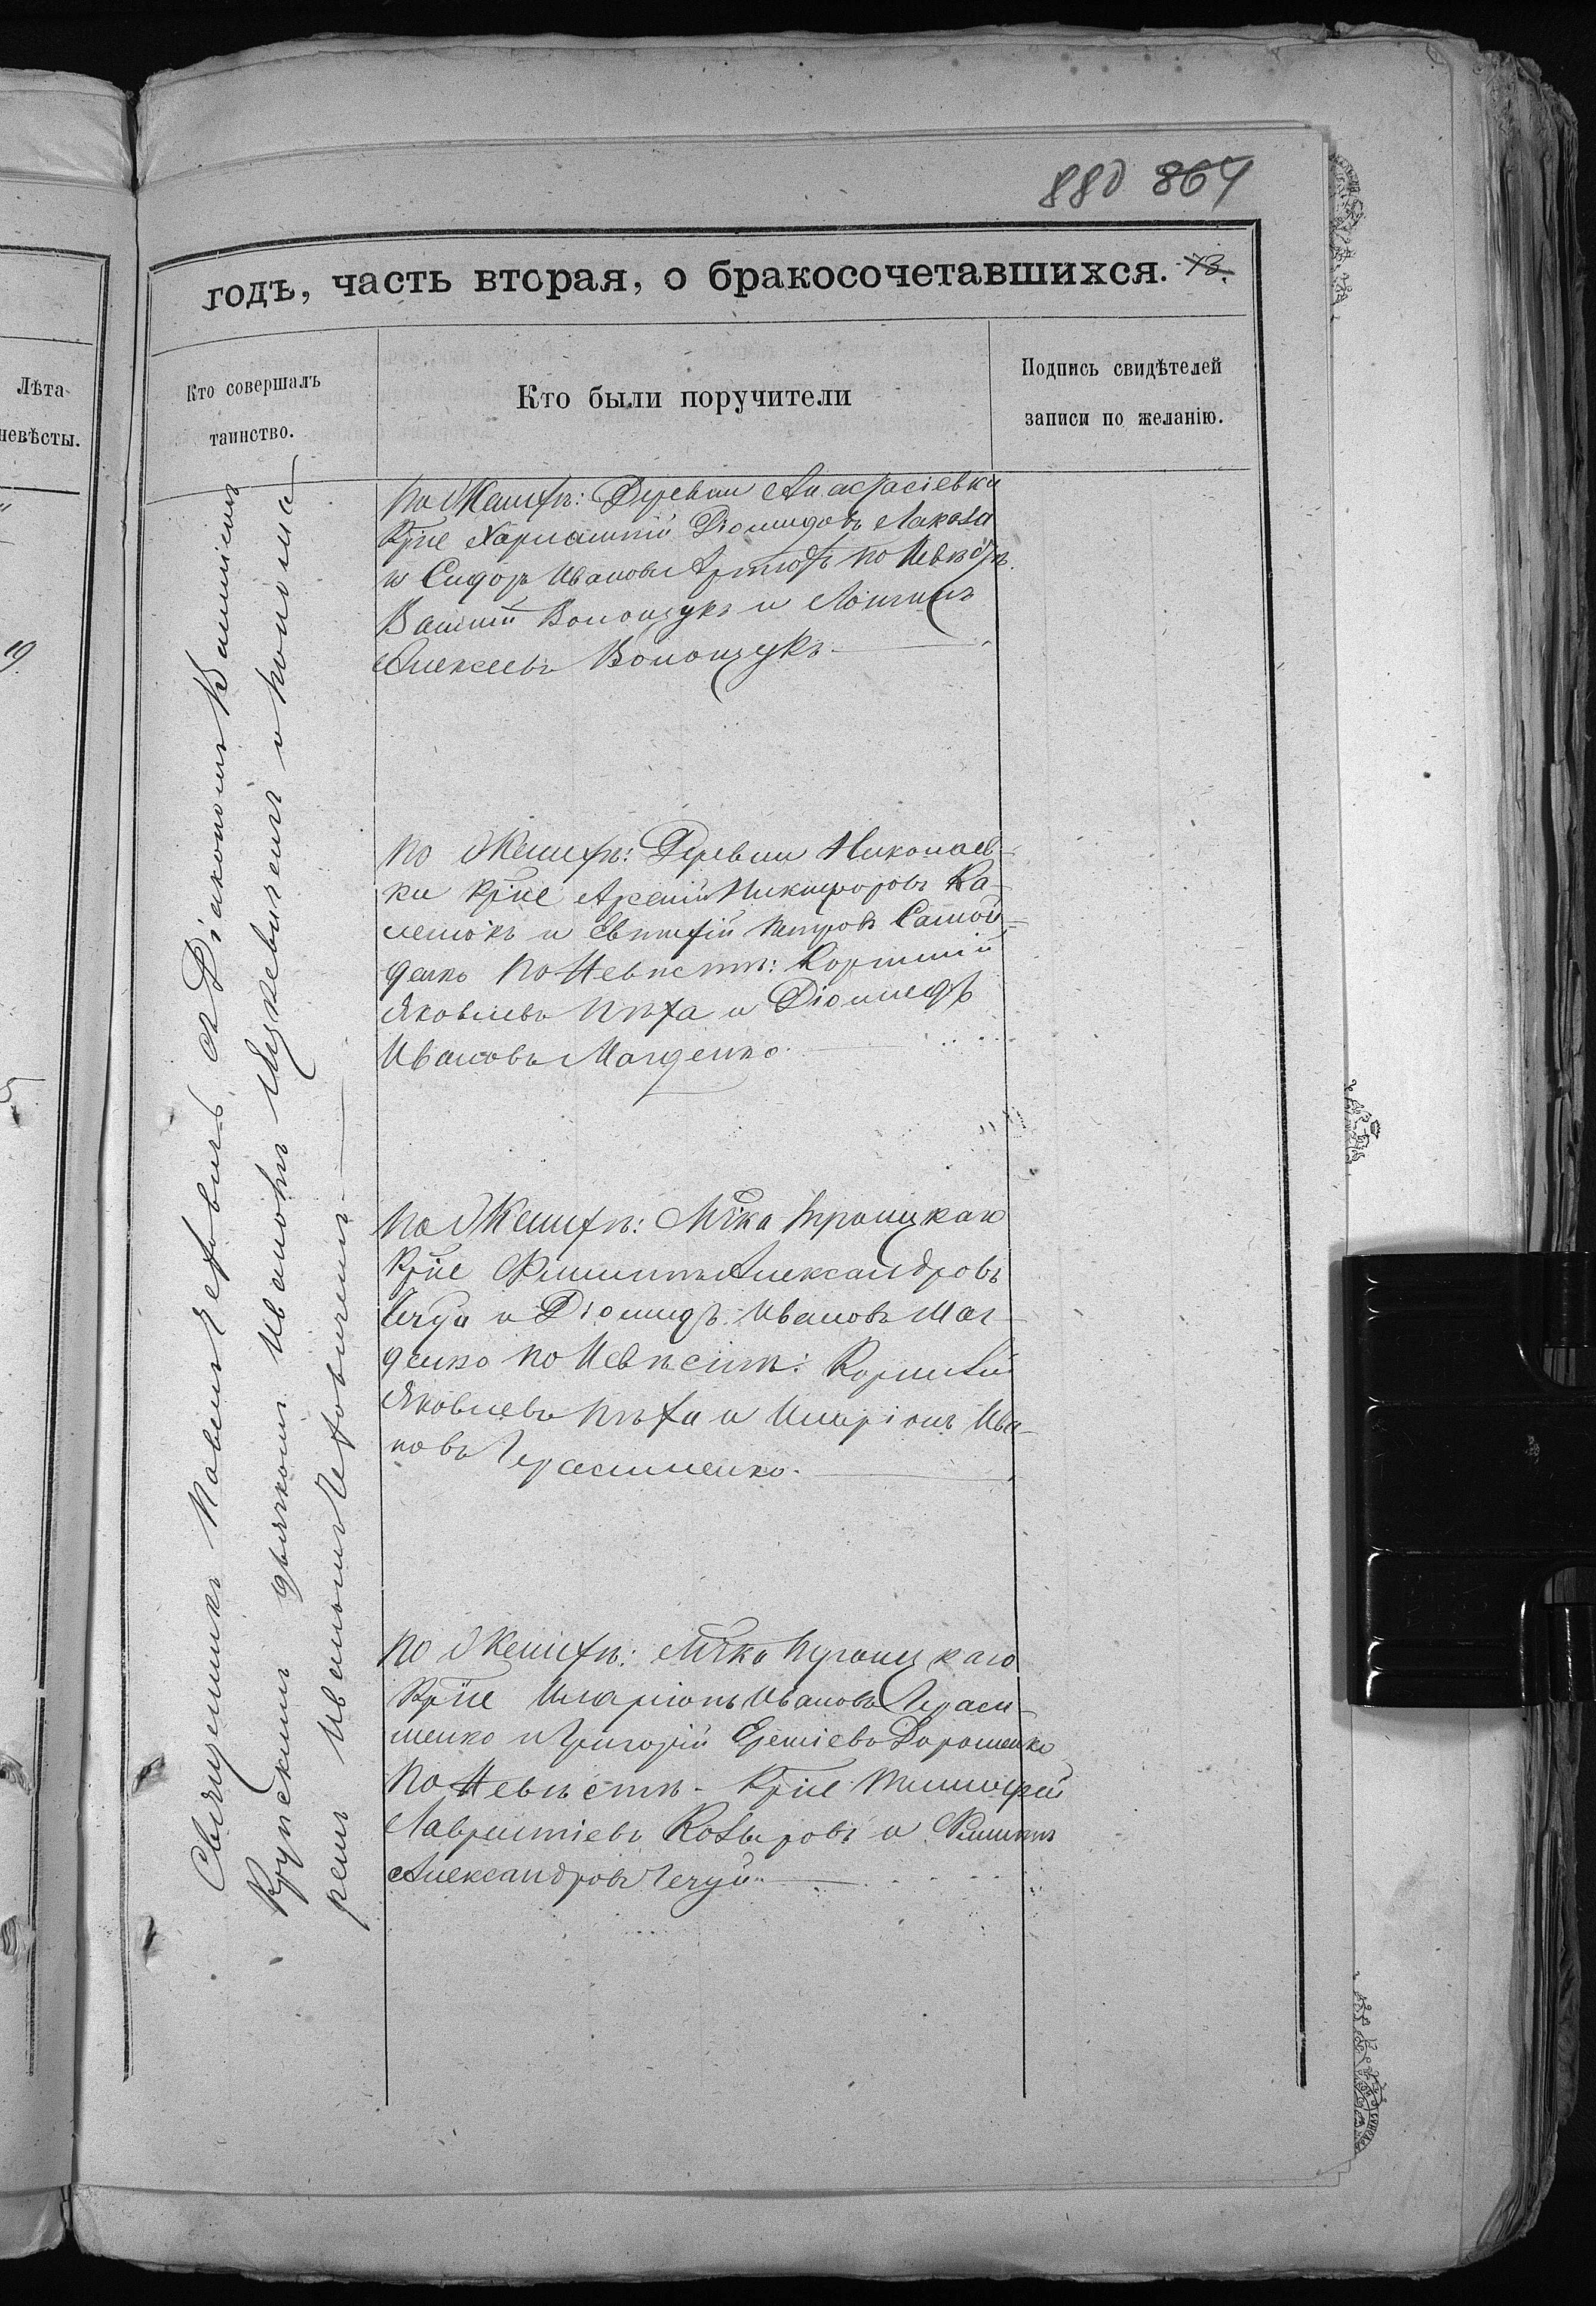 880 864
годъ, часть вторая, о бракосочетавшихся. 13.
Лѣта
невѣсты.
19
Кто совершалъ
таинство.
Кто были поручители
Подпись свидѣтелей
записи по желанію.
Священникъ Павелъ съ Діакономъ Василіемъ
Крупскимъ дьячкомъ Иваномъ и понома
ремъ
По Женихѣ: Деревни Анастасіевки
Крне Харлампій Діомидовъ Лакоза
и Сидоръ Ивановъ по Невѣстѣ
Василій Волощукъ и Логинъ
Алексеевъ Волощукъ.
По Женихѣ: Деревни Николаев-
ки Крне Арсеній Никифоровъ Ка-
и Евтихій Петровъ Самой-
денко По Невѣстѣ: Корнилій
Яковлевъ и Діомидъ
Ивановъ Магденко.
По Женихѣ: Мѣчка Троицкаго
Крне Филиппъ Александровъ
Чечуй и Діомидъ Ивановъ Маг-
денко по Невѣстѣ: Корнилій
Яковлевъ и Иларіонъ Ива-
новъ Герасименко.
По Женихѣ: Мѣчка Троицкаго
Крне Иларіонъ Ивановъ Гераси-
менко и Григорій Еремѣевъ Дорошенко
По Невѣстѣ - Крне Тимофей
Лаврентіевъ Козыровъ и Филиппъ
Александровъ Чечуй.